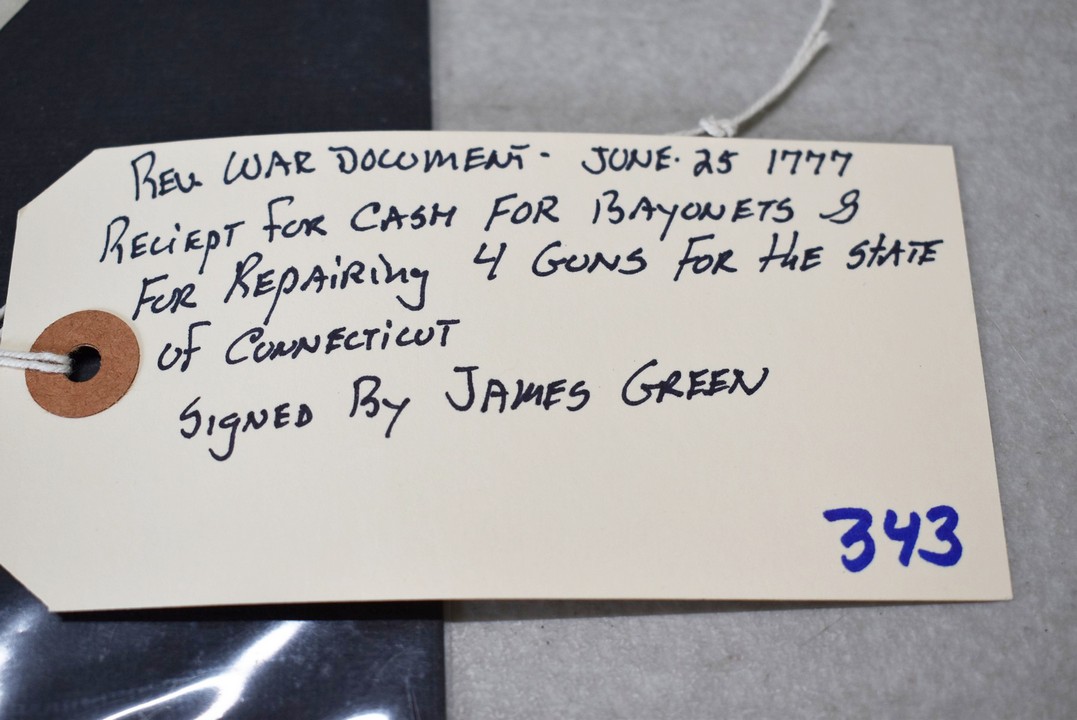 REV WAR DOCUMENT - JUNE. 25 1777
RECIEPT FOR CASH FOR BAYONETS &
FOR REPAIRING 4 GUNS FOR tHE STATE
OF CONNECTICUT
SIGNED BY JAMES GREEN
343